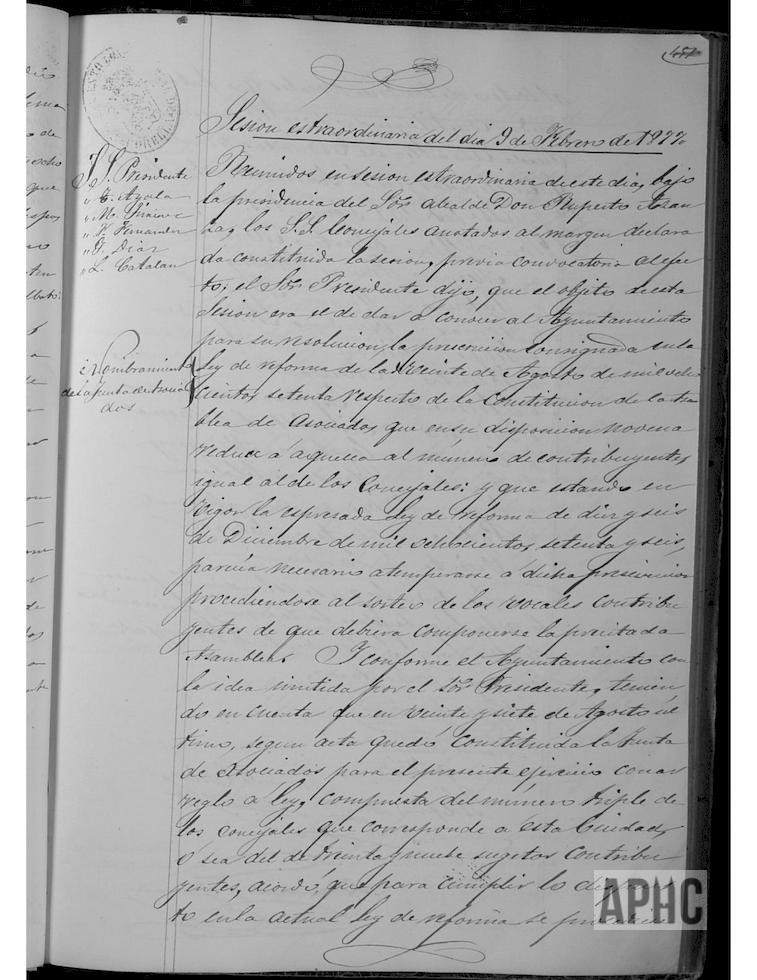 Sesion estraordinaria del dia 9 de Febrero de 1877.
S. S. Presidente
" Z. Ayala
" M.
" F. Fernandez
" J. Diaz
" L. Catalan
Nombramiento
de la Junta de Asocia
dos
Reunidos en sesion estraordinaria de este dia, bajo
la presidencia del Sor. Alcalde Don Ruperto
los S.S. Concejales anotados al margen declara
da constituida la sesion, previa convocatoria al efec
to; el Sor. Presidente dijo, que el objeto de esta
Sesion era el de dar a conocer al Ayuntamiento
para su resolucion, la prescricion consignada en la
Ley de reforma de la veinte de Agosto de mil ocho
cientos setenta respecto de la Constitucion de la Asam
blea de Asociados que en su disposicion novena
reduce á aquella al número de contribuyentes
igual al de los Concejales: y que estando en
vigor la espresada Ley de reforma de diez y seis
de Diciembre de mil ochocientos setenta y seis,
parecia necesario atemperarse á dicha prescricion
procediendose al sorteo de los vocales contribu
yentes de que debiera componerse la precitada
Asamblea. Y conforme el Ayuntamiento con
la idea emitida por el Sor. Presidente, tenien
do en cuenta que en veinte y siete de Agosto úl
timo, segun acta quedó constituida la Junta
de Asociados para el presente ejercicio con ar
reglo á ley, compuesta del número triple de
los concejales que corresponde a esta Ciudad,
ó sea del de treinta y nueve sugetos contribu
yentes, acordó, que para cumplir lo dispues
to en la actual Ley de reforma se
APHC